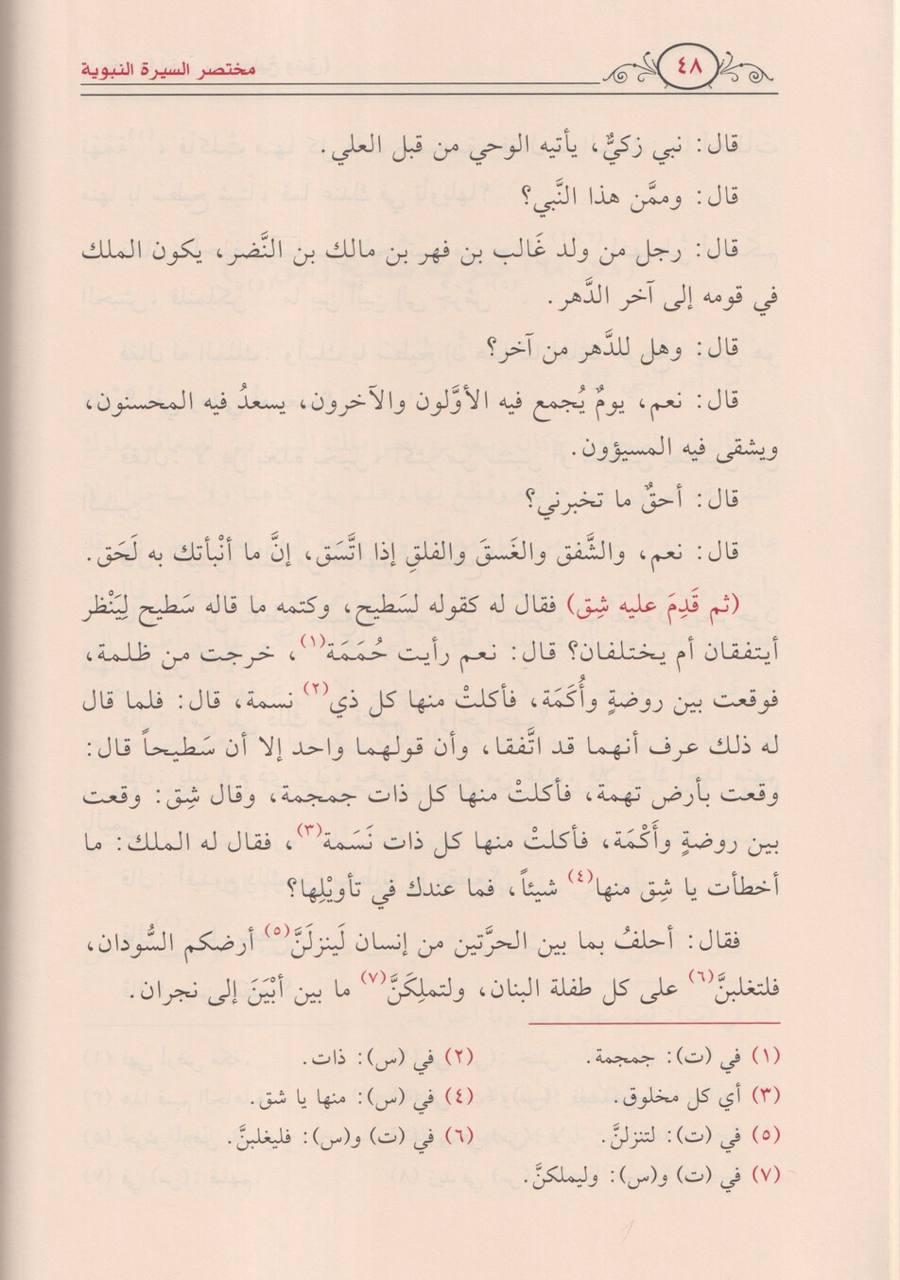 ٤٨
مختصر السيرة النبوية
قال: نبي زكيٌّ، يأتيه الوحي من قبل العلي.
قال: وممَّن هذا النَّبي؟
قال: رجل من ولد غَالب بن فهر بن مالك بن النَّضر، يكون الملك
في قومه إلى آخر الدَّهر.
قال: وهل للدَّهر من آخر؟
قال: نعم، يومٌ يُجمع فيه الأوَّلون والآخرون، يسعدُ فيه المحسنون،
ويشقى فيه المسيؤون.
قال: أحقٌ ما تخبرني؟
قال: نعم، والشَّفق والغَسقَ والفلقِ إذا اتَّسَق، إنَّ ما أنْبأتك به لَحَق.
(ثم قَدِمَ عليه شِق) فقال له كقوله لسَطيح، وكتمه ما قاله سَطيح لِيَنْظر
أيتفقان أم يختلفان؟ قال: نعم رأيت حُمَمَة(١)، خرجت من ظلمة،
فوقعت بين روضةٍ وأُكَمَة، فأكلتْ منها كل ذي(٢) نسمة، قال: فلما قال
له ذلك عرف أنهما قد اتَّفقا، وأن قولهما واحد إلا أن سَطيحاً قال:
وقعت بأرض تهمة، فأكلتْ منها كل ذات جمجمة، وقال شِق: وقعت
بين روضةٍ وأَكْمَة، فأكلتْ منها كل ذات نَسَمة(٣)، فقال له الملك: ما
أخطأت يا شِق منها(٤) شيئاً، فما عندك في تأويْلِها؟
فقال: أحلفُ بما بين الحرَّتين من إنسان لَينزلَنَّ(٥) أرضكم السُّودان،
فلتغلبنَّ(٦) على كل طفلة البنان، ولتملِكَنَّ(٧) ما بين أبْيَنَ إلى نجران.
(١) في (ت): جمجمة. (٢) في (س): ذات.
(٣) أي كل مخلوق. (٤) في (س): منها يا شق.
(٥) في (ت): لتنزلنَّ. (٦) في (ت) و(س): فليغلبنَّ.
(٧) في (ت) و(س): وليملكنَّ.